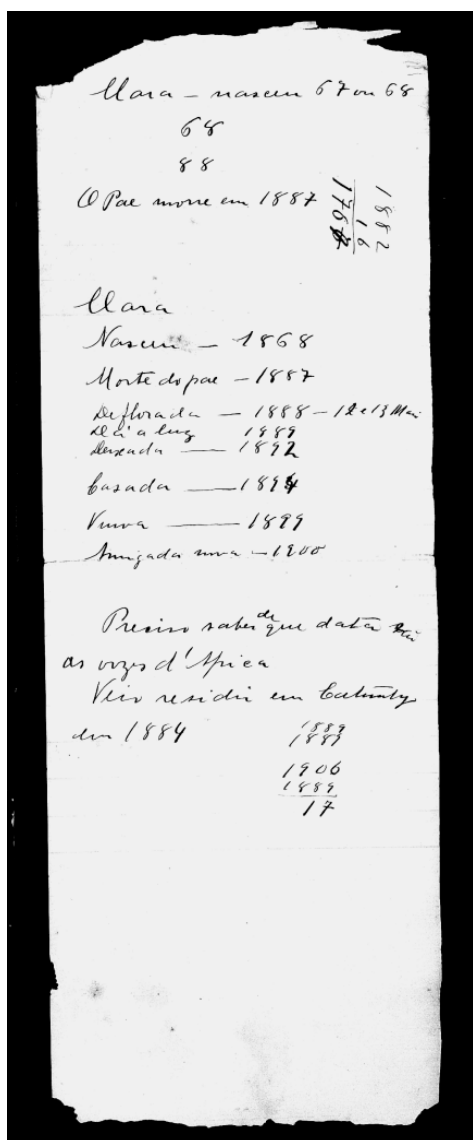 Clara – nasceu 67 ou 68
68
88
O Pae morre em 1887
1882
16
1768
Clara
Nasceu — 1868
Morte do pae – 1887
Deflorada — 1888 – 12 e 13 Mai
Dá a luz 1889
Deixada — 1892
Casada — 1894
Viuva — 1899
Amigada nova – 1900
Preciso saber de que data são
as vozes d'Africa
Veio residir em Catumby
em 1884
1889
1887
1906
1889
17